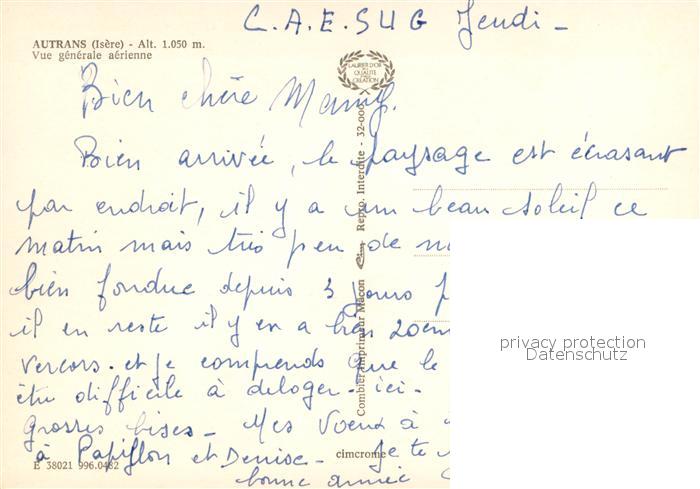 C.A.E.SUG Jeudi -
AUTRANS (Isère) - Alt. 1.050 m.
Vue générale aérienne
LAURIER D'OR
DE LA
QUALITÉ
CRÉATION
Bien chère Mamy.
Bien arrivée, le paysage est écrasant
par endroit, il y a un beau soleil ce
matin mais très peu de
bien fondue depuis 3 jours
il en reste il y en a bien 20cm
Vercors. et je comprends que le
être difficile à deloger. ici.
Grosses bises - Mes Voeux à
à Papillon et Denise. Je te
bonne année
Combier Imprimeur Macon Cim Repro. Interdite - 32-000
cimcrome
E 38021 996.0482
privacy protection
Datenschutz